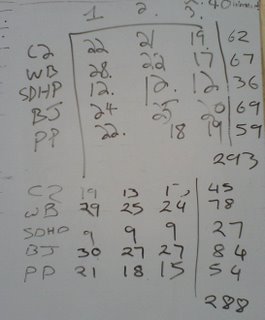 1 2. 3.
C2 22 21 19 62
WB 28. 22 17 67
SDHP 12. 12. 12 36
BJ 24 25 20 69
PP 22. 18 19 59
293
C2 19 13 45
WB 29 25 24 78
SDHP 9 9 9 27
BJ 30 27 27 84
PP 21 18 15 54
288